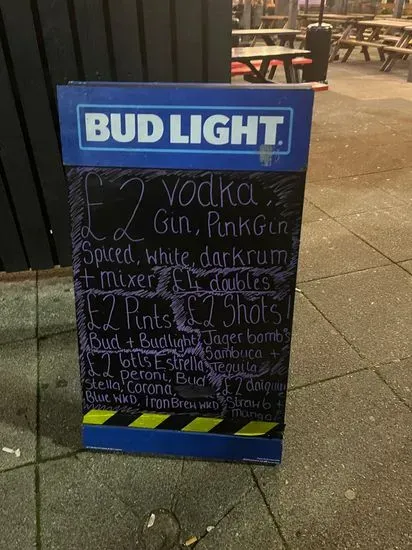 BUD LIGHT
£2 vodka,
Gin, PinkGin
Spiced, white, darkrum
+ mixer £4 doubles
£2 Pints
Bud + Budlight
£2 Shots!
Jager bomb's
Sambuca +
Tequila
£2 btls Estrella
peroni, Bud
Stella, Corona,
Blue WKD, IronBrew WKD
£2 daiquiri
Strawb +
mango